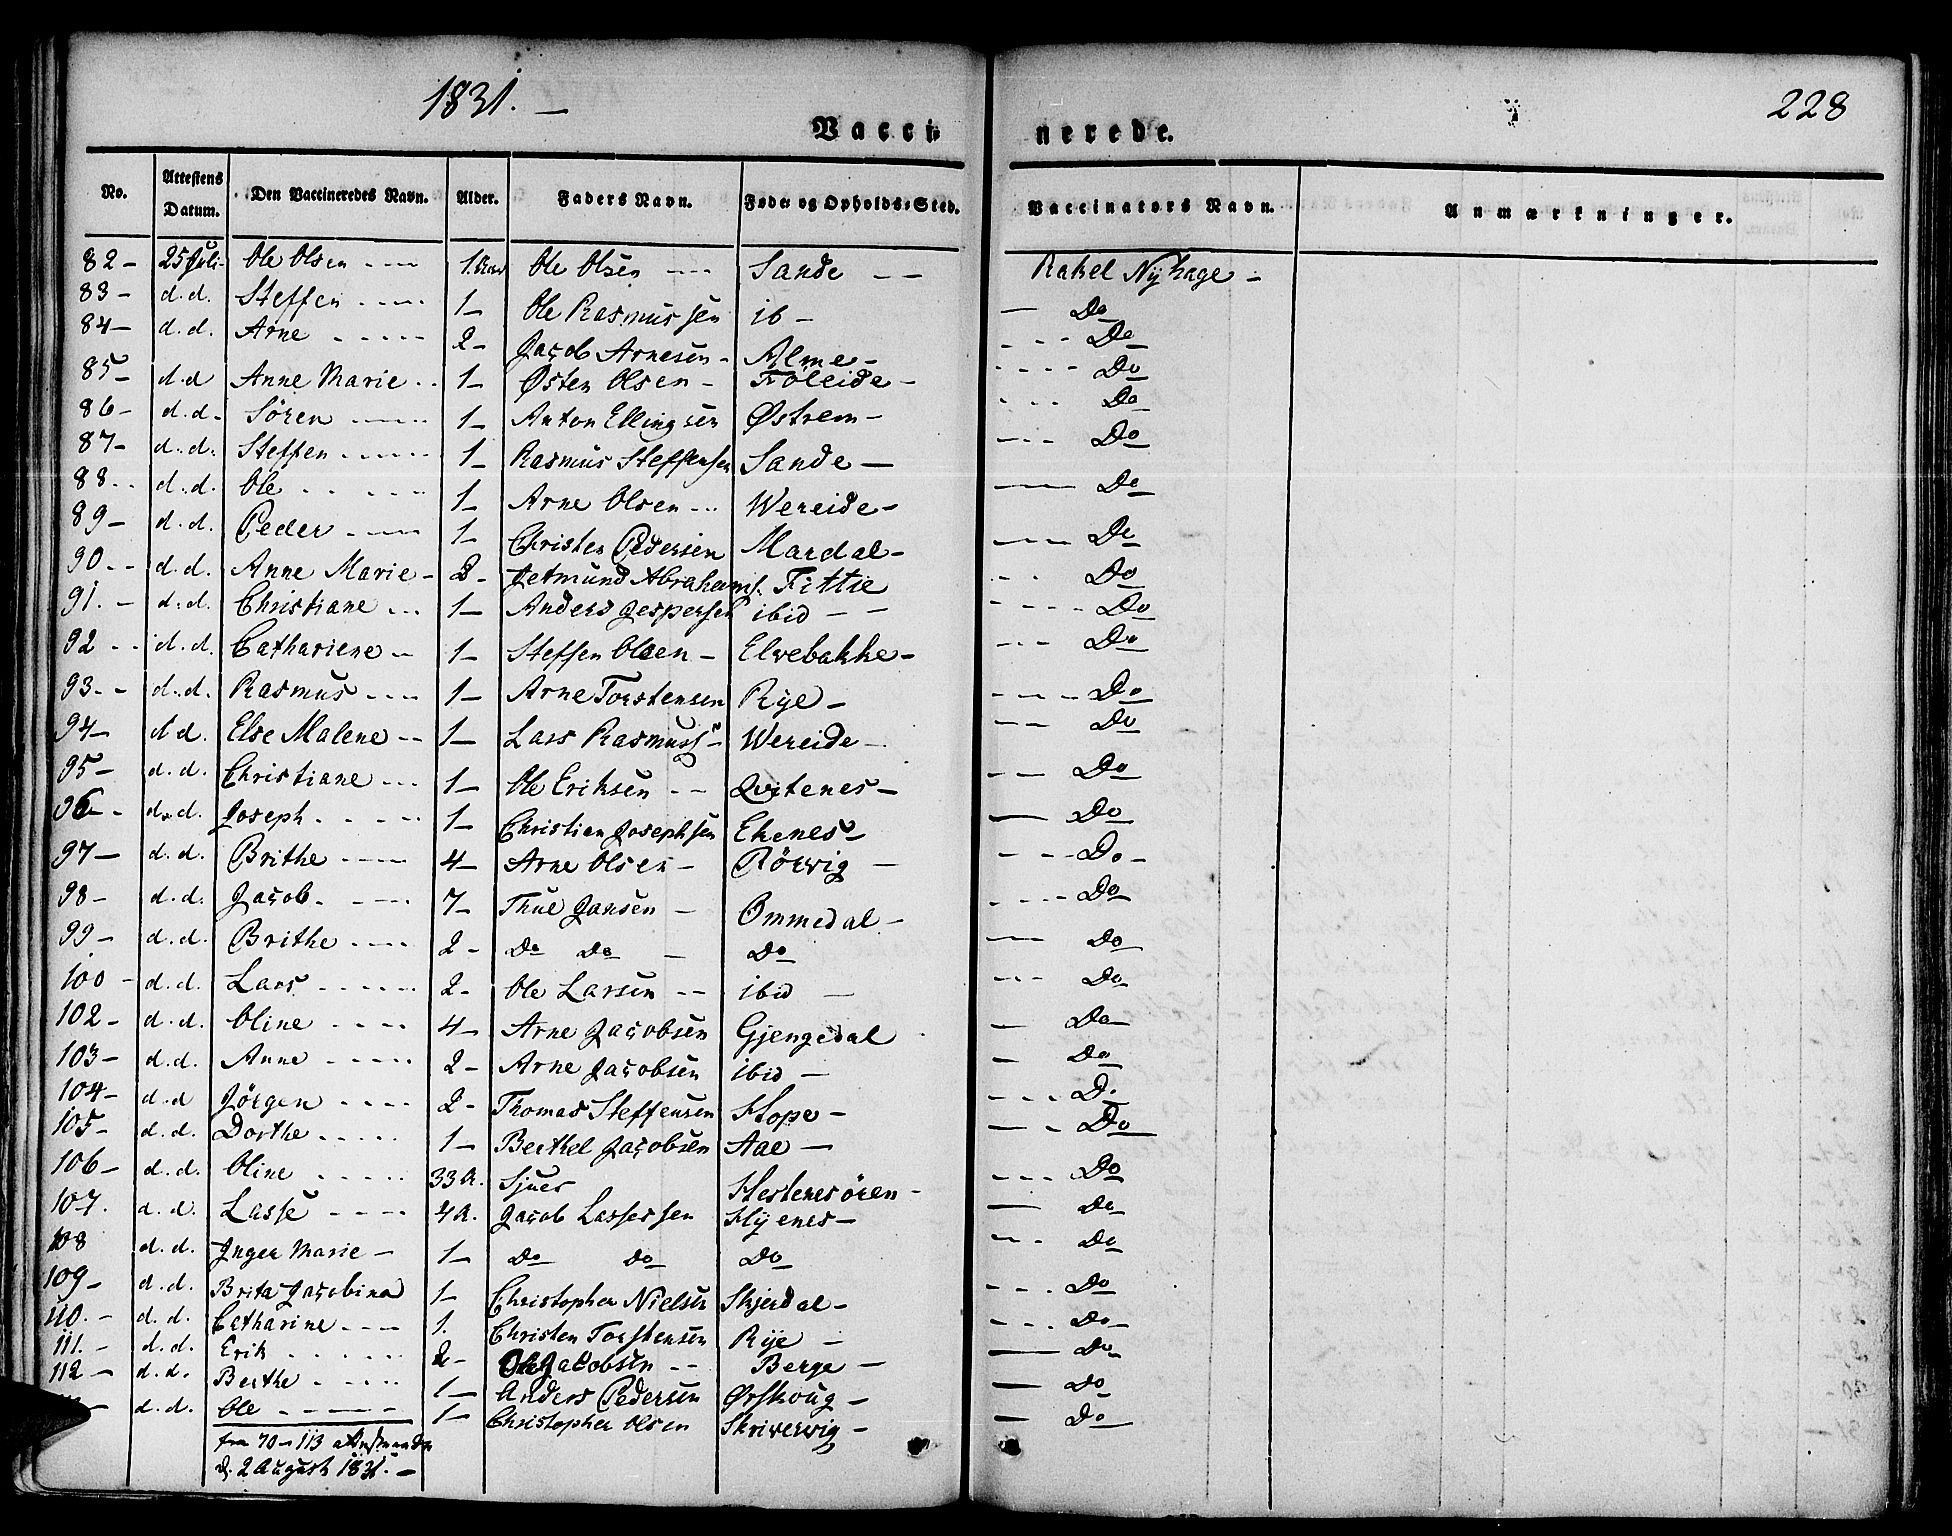 1831. —
228
Vaccinerede.
No. | Attestens Datum. | Den Vaccineredes Navn. | Alder. | Faders Navn. | Føde- og Opholds-Sted. | Vaccinators Navn. | Anmærkninger.
82 - | 25 Juli- | Ole Olsen ---- | 1. Aar | Ole Olsen --- | Sande -- | Rakel Nyhage -
83 - | d.d. | Steffen ---- | 1- | Ole Rasmussen | ib - | — Do
84 - | d.d. | Arne ----- | 2- | Jacob Arnesen - | Alme - | --- Do
85 - | d.d | Anne Marie .. | 1- | Østen Olsen - | Föleide - | ---- Do
86 - | d.d- | Sören ---- | 1- | Anton Ellingsen | Østrem - | --- Do
87 - | d.d. | Steffen ---- | 1- | Rasmus Steffensen | Sande — | --- Do
88 .. | d.d. | Ole ----- | 1- | Arne Olsen -- | Wereide - | --- Do
89 - | d.d. | Peder ---- | 1- | Christen Pedersen | Mardal - | --- Do
90 -- | d.d. | Anne Marie - | 2- | Jetmund Abrahams. | Fittie | --- Do
91. - | d.d. | Christiane --- | 1- | Anders Jespersen | ibid -- | ---- Do
92 -- | d.d. | Cathariene -- | 1- | Steffen Olsen - | Elvebakke - | --- Do
93 -- | d.d. | Rasmus ---- | 1- | Arne Torstensen | Rye - | --- Do
94 - | d d. | Else Malene -- | 1- | Lars Rasmuss - | Wereide - | --- Do
95 - | d.d. | Christiane --- | 1- | Ole Eriksen -- | Qvitenes - | --- Do
96 - | d.d. | Joseph ----- | 1- | Christian Josephsen | Ekenes - | — Do
97 - | d.d. | Brithe ---- | 4- | Arne Olsen - | Rörvig — | --- Do -
98 - | d.d. | Jacob. ---- | 7- | Thue Jansen - | Ommedal - | ---- Do
99 - | d.d. | Brithe ---- | 2- | Do Do — | Do | — Do
100 - | d.d. | Lars ------ | 2- | Ole Larsen -- | ibid — | --- Do
102 - | d.d. | Oline ---- | 4- | Arne Jacobsen | Gjengedal | — Do
103 - | d.d. | Anne ----- | 2- | Arne Jacobsen | ibid — | — Do
104 - | d.d | Jörgen ---- | 2- | Thomas Steffensen | Hope - | --- Do
105 - | d.d. | Dorthe ----- | 1- | Berthel Jacobsen | Aae — | --- Do
106 - | d.d. | Oline ----- | 33 A. | Sjuer | Hestenesören - | --- Do
107. | d.d. | Lasse ---- | 4 A. | Jacob Lassessen | Hyenes - | — Do
108 | d.d. | Inger Marie - | 1- | Do Do | Do | --- Do
109 - | d.d. | Brita Jacobina | 1- | Christopher Nielsen | Skjerdal - | --- Do
110. - | d.d. | Catharine ---- | 1. | Christen Torstensen | Rye - | --- Do
111. - | d.d. | Erik ------ | 2- | Ole Jacobsen -- | Berge — | — Do
112 - | d.d. | Berthe ---- | 1- | Anders Pedersen | Ørskoug - | — Do
- | d.d. | Ole ----- | 1- | Christopher Olsen | Skrivervig - | — Do
fra 70 - 113
d. 2 August 1831. -